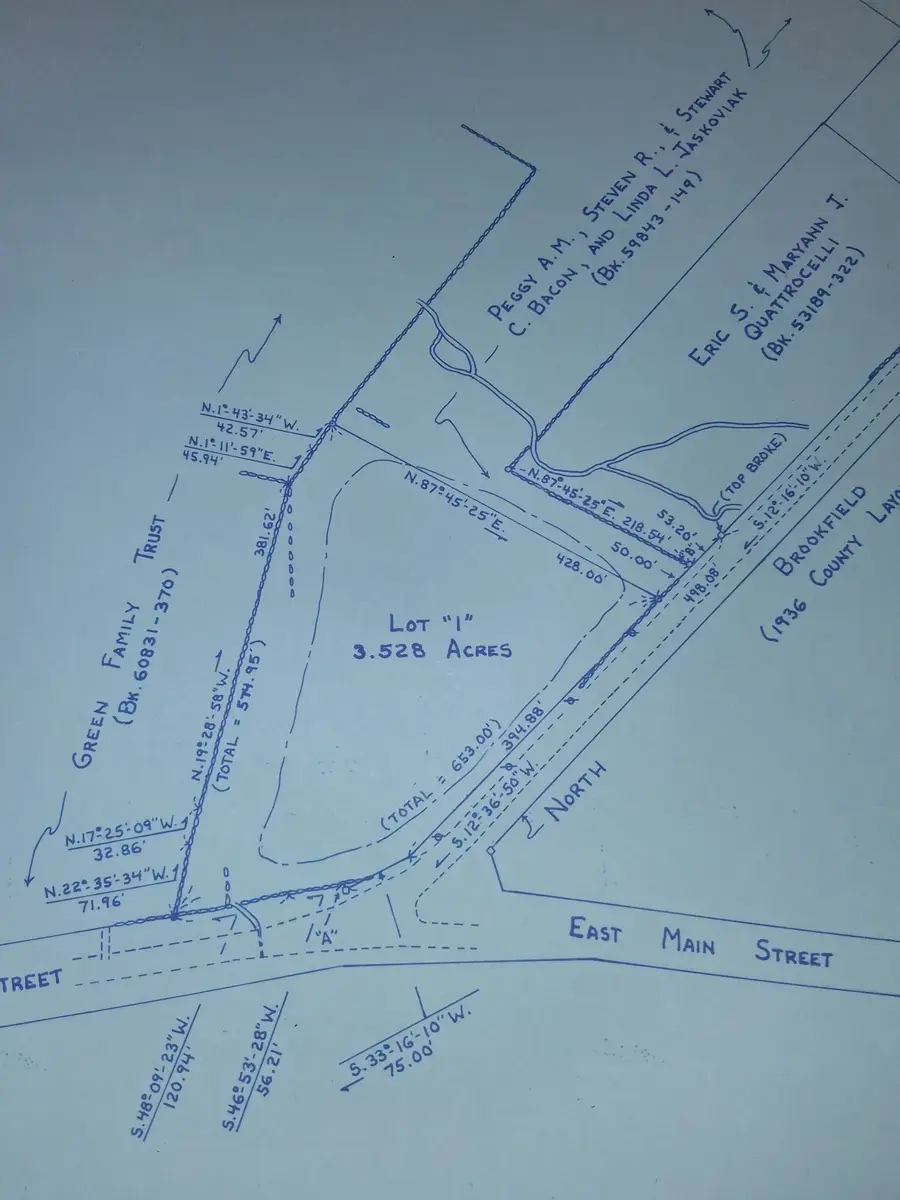 PEGGY A.M., STEVEN R., & STEWART
C. BACON, AND LINDA L. JASKOVIAK
(BK. 59843-149)
ERIC S. & MARYANN J.
QUATTROCELLI
(BK. 53189-322)
N.1°-43'-34"W.
42.57'
N.1°-11'-59"E.
45.94'
GREEN FAMILY TRUST
(BK. 60831-370)
381.62'
N.19°-28'-58"W.
(TOTAL = 574.95')
N.87°-45'-25"E.
428.00'
N.87°-45'-25"E.
218.54'
53.20'
50.00'
"B"
(TOP BROKE)
S.12°-16'-10"W.
498.08'
BROOKFIELD
(1936 COUNTY LAYO
LOT "1"
3.528 ACRES
(TOTAL = 653.00')
394.88'
S.12°-36'-50"W.
NORTH
N.17°-25'-09"W.
32.86'
N.22°-35'-34"W.
71.96'
"A"
TREET
EAST MAIN STREET
S.48°-09'-23"W.
120.94'
S.46°-53'-28"W.
56.21'
S.33°-16'-10"W.
75.00'